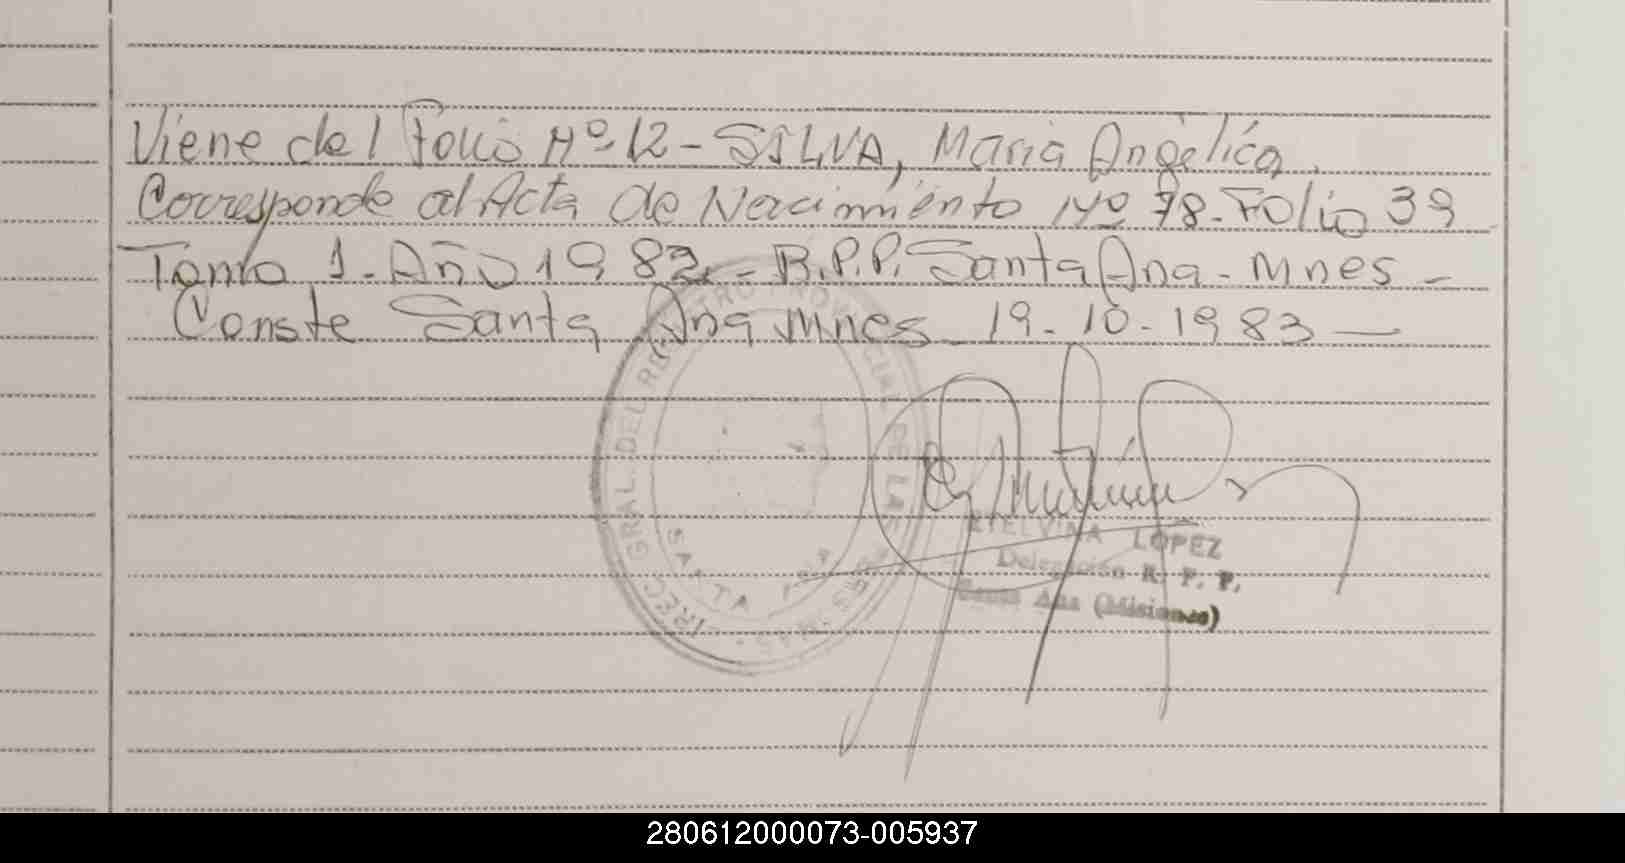 Viene del Folio Nº 12 - SILVA, Maria Angélica.
Corresponde al Acta de Nacimiento Nº 78 - Folio 39
Tomo 1 - Año 1982 - R.P.P. Santa Ana - Mnes -
Conste Santa Ana Mnes - 19 - 10 - 1983 —
DIREC. GRAL. DEL REGISTRO PROVINCIAL DE LAS
SANTA ANA
ETELVINA LOPEZ
Delegación R. P. P.
Santa Ana (Misiones)
280612000073-005937